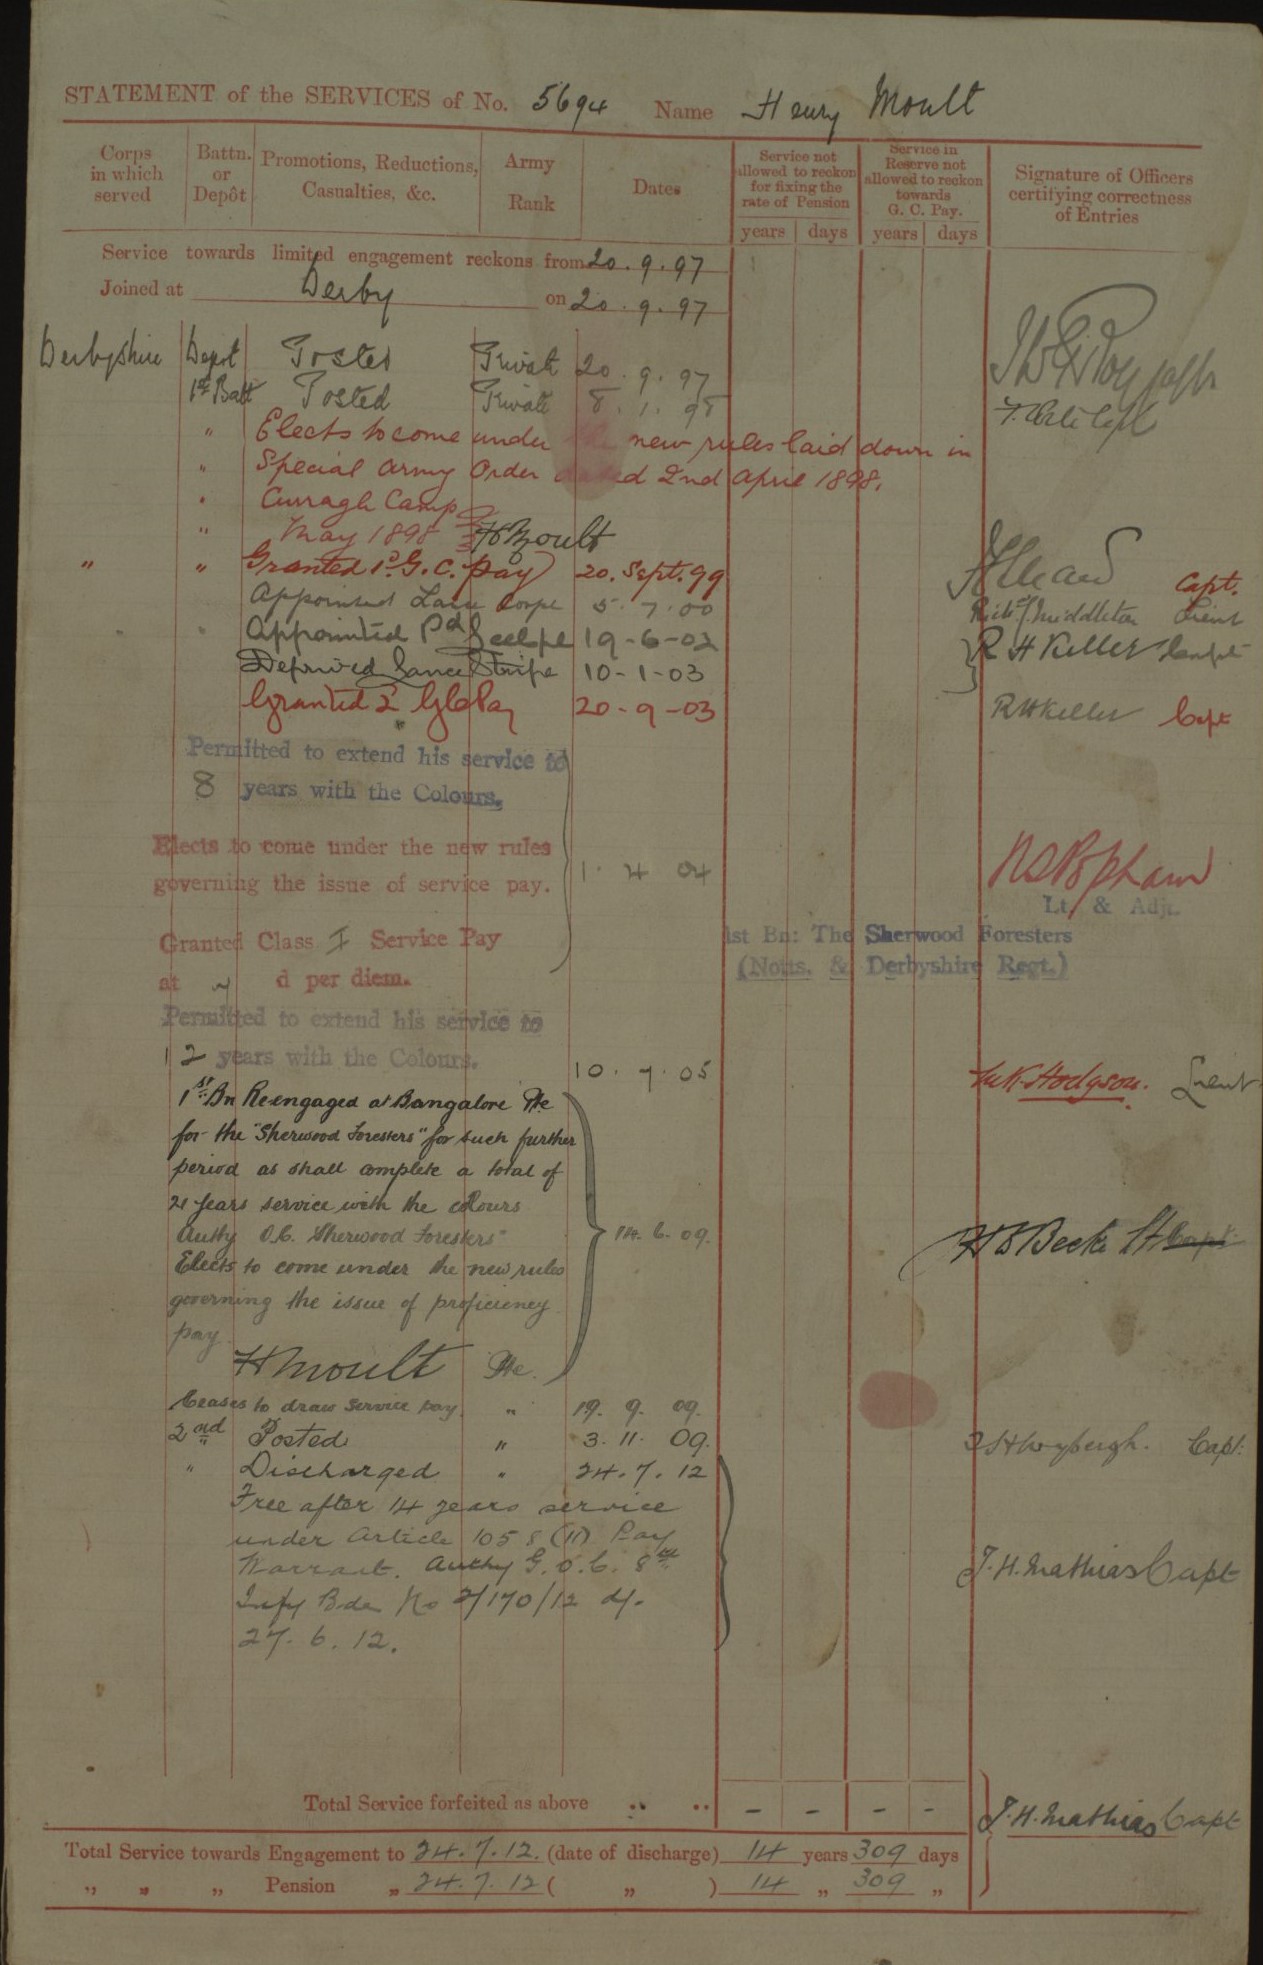 STATEMENT of the SERVICES of No. 5694 Name Henry Moult
Corps in which served
Battn. or Depôt
Promotions, Reductions, Casualties, &c.
Army Rank
Dates
Service not allowed to reckon for fixing the rate of Pension
Service in Reserve not allowed to reckon towards G. C. Pay.
Signature of Officers certifying correctness of Entries
years days years days
Service towards limited engagement reckons from 20.9.97
Joined at Derby on 20.9.97
Derbyshire Depot Posted Private 20.9.97
1st Batt Posted Private 8.1.98
" Elects to come under the new rules laid down in
" Special Army Order dated 2nd April 1898.
" Curragh Camp
" May 1898 H Moult
" " Granted 1st G.C. Pay 20. Sept. 99 Capt.
Appointed Lance Corpl 5.7.00 Middleton Lieut
" " Appointed Pd 19-6-02 R H Keller Capt
Deprived Lance Stripe 10-1-03
Granted 2 G C Pay 20-9-03 R H Keller Capt
Permitted to extend his service to
8 years with the Colours.
Elects to come under the new rules
governing the issue of service pay. 1.4 04
Lt. & Adjt.
Granted Class I Service Pay
1st Bn: The Sherwood Foresters
(Notts. & Derbyshire Regt.)
at d per diem.
Permitted to extend his service to
12 years with the Colours. 10.7.05 Hodgson. Lieut
1st Bn Re-engaged at Bangalore Pte
for the "Sherwood Foresters" for such further
period as shall complete a total of
21 years service with the colours
Authy O.C. Sherwood Foresters" 14.6.09. Lt Capt
Elects to come under the new rules
governing the issue of proficiency
pay.
H Moult Pte.
Ceases to draw service pay. " 19. 9. 09.
2nd Posted " 3. 11. 09. Capt.
" Discharged " 24.7.12
Free after 14 years service
under Article 1058 (11) Pay
Warrant. Authy G.O.C. 8th T.H. Mathias Capt
Infy Bde No 2/170/12 d/.
27.6.12.
Total Service forfeited as above .. .. - - - - T.H. Mathias Capt
Total Service towards Engagement to 24.7.12. (date of discharge) 14 years 309 days
" " " Pension " 24.7.12 ( " ) 14 " 309 "